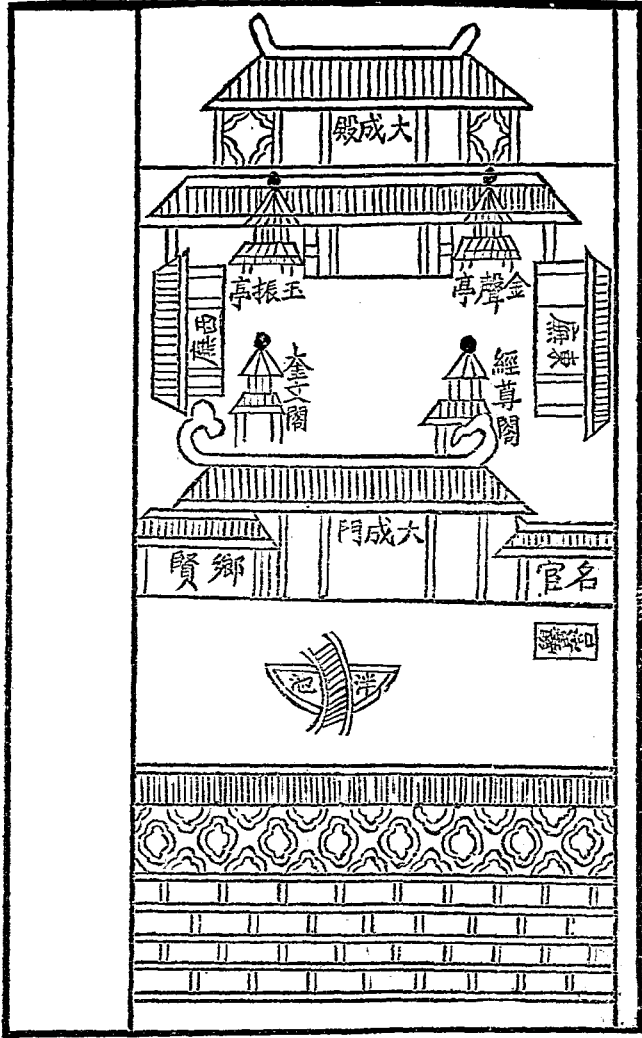 大成殿
金聲亭
玉振亭
東廡
西廡
尊經閣
奎文閣
大成門
名宦
鄉賢
泮池